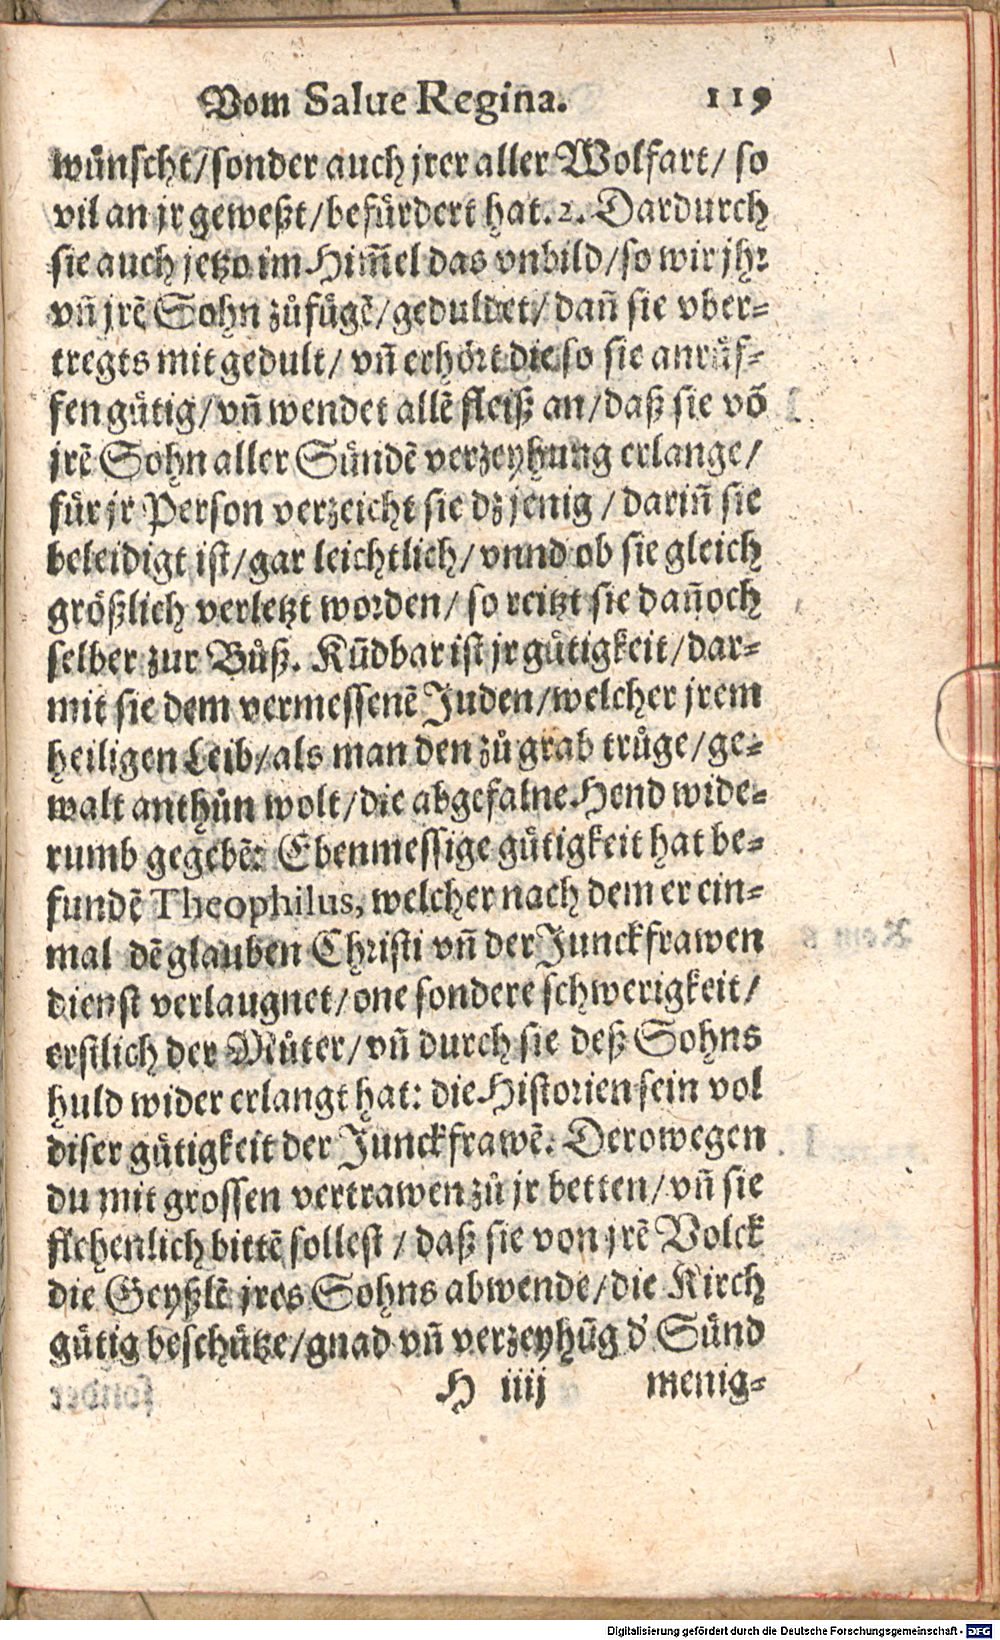 Vom Salue Regina. 119
wünscht/sonder auch jrer aller Wolfart/ so
vil an jr geweßt/befürdert hat. 2. Dardurch
sie auch jetzo im Him̃el das vnbild/so wir jhr
vñ jrẽ Sohn zůfügẽ/geduldet/ dañ sie vber-
tregts mit gedult/ vñ erhört die so sie anrüf-
fen gütig/vñ wendet allẽ fleiß an/daß sie võ
jrẽ Sohn aller Sündẽ verzeyhung erlange/
für jr Person verzeicht sie dz jenig / dariñ sie
beleidigt ist/gar leichtlich/ vnnd ob sie gleich
größlich verletzt worden/ so reitzt sie dañoch
selber zur Bůß. Kũdbar ist jr gütigkeit/dar-
mit sie dem vermessenẽ Juden/welcher jrem
heiligen Leib/als man den zů grab trüge/ge-
walt anthůn wolt/die abgefalne Hend wide-
rumb gegebẽ: Ebenmessige gütigkeit hat be-
fundẽ Theophilus, welcher nach dem er ein-
mal dẽ glauben Christi vñ der Junckfrawen
dienst verlaugnet/one sondere schwerigkeit/
erstlich der Můter/vñ durch sie deß Sohns
huld wider erlangt hat: die Historien sein vol
diser gütigkeit der Junckfrawẽ. Derowegen
du mit grossen vertrawen zů jr betten/vñ sie
flehenlich bittẽ sollest / daß sie von jrẽ Volck
die Geyßlẽ jres Sohns abwende/die Kirch
gütig beschütze/gnad vñ verzeyhũg d' Sünd
H iiij menig-
Digitalisierung gefördert durch die Deutsche Forschungsgemeinschaft - DFG